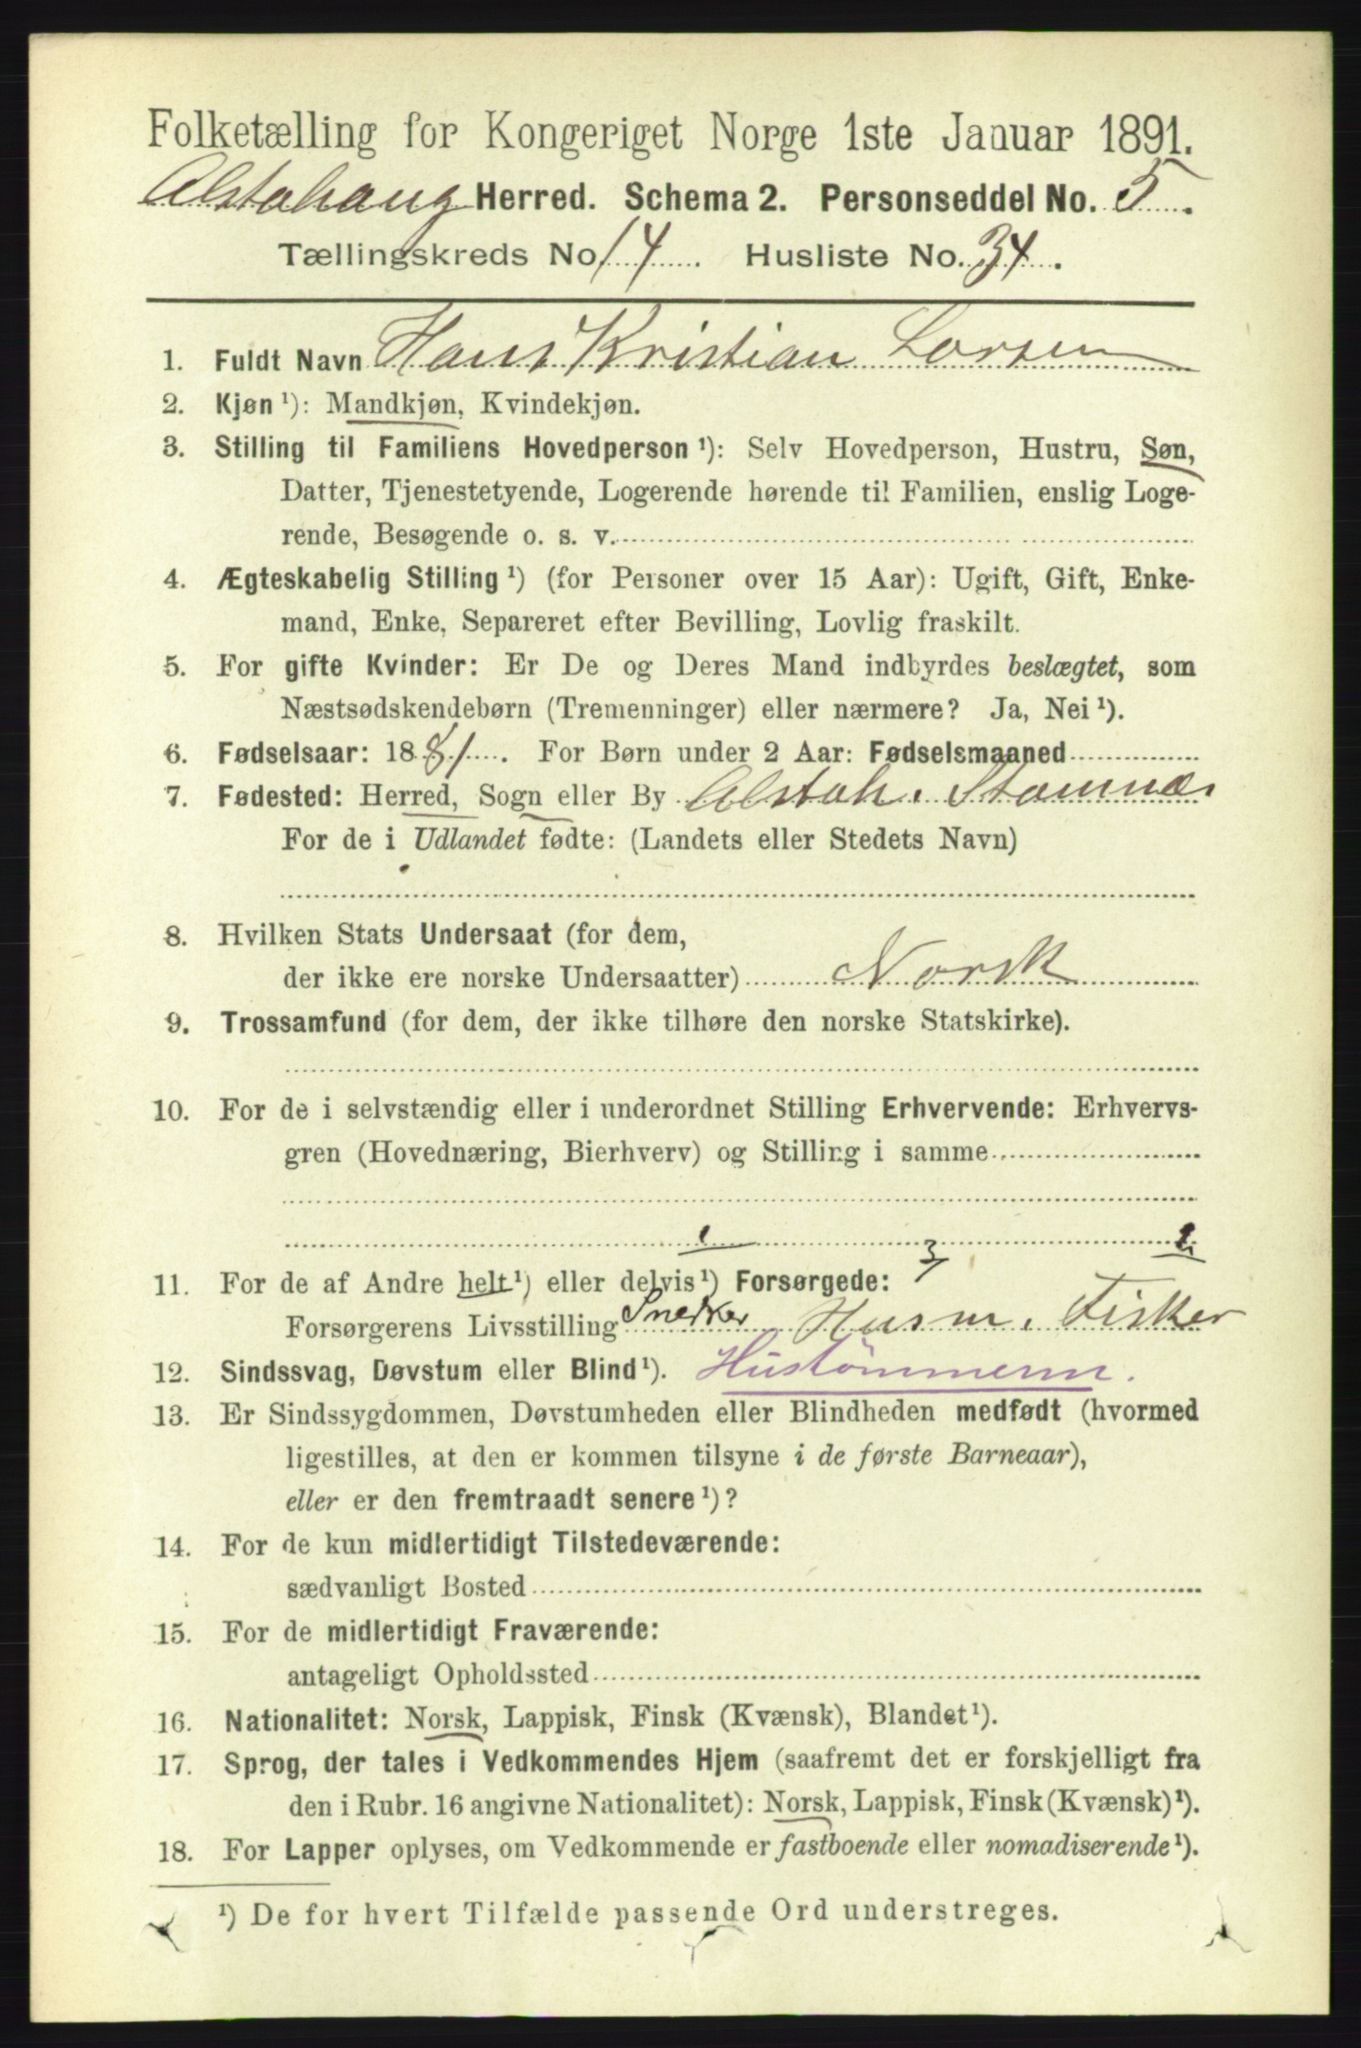 Folketælling for Kongeriget Norge 1ste Januar 1891.
Alstahaug Herred. Schema 2. Personseddel No. 5.
Tællingskreds No 14. Husliste No. 34.
1. Fuldt Navn Hans Kristian Larsen
2. Kjøn ¹): Mandkjøn, Kvindekjøn.
3. Stilling til Familiens Hovedperson ¹): Selv Hovedperson, Hustru, Søn,
Datter, Tjenestetyende, Logerende hørende til Familien, enslig Loge-
rende, Besøgende o. s. v.
4. Ægteskabelig Stilling ¹) (for Personer over 15 Aar): Ugift, Gift, Enke-
mand, Enke, Separeret efter Bevilling, Lovlig fraskilt.
5. For gifte Kvinder: Er De og Deres Mand indbyrdes beslægtet, som
Næstsødskendebørn (Tremenninger) eller nærmere? Ja, Nei ¹).
6. Fødselsaar: 1881. For Børn under 2 Aar: Fødselsmaaned
7. Fødested: Herred, Sogn eller By Alstah. Stamnæs
For de i Udlandet fødte: (Landets eller Stedets Navn)
8. Hvilken Stats Undersaat (for dem,
der ikke ere norske Undersaatter) Norsk
9. Trossamfund (for dem, der ikke tilhøre den norske Statskirke).
10. For de i selvstændig eller i underordnet Stilling Erhvervende: Erhvervs-
gren (Hovednæring, Bierhverv) og Stilling i samme
1 3 2
11. For de af Andre helt ¹) eller delvis ¹) Forsørgede:
Forsørgerens Livsstilling Snedker Husm. Fisker
12. Sindssvag, Døvstum eller Blind ¹). Hustømmerm.
13. Er Sindssygdommen, Døvstumheden eller Blindheden medfødt (hvormed
ligestilles, at den er kommen tilsyne i de første Barneaar),
eller er den fremtraadt senere ¹)?
14. For de kun midlertidigt Tilstedeværende:
sædvanligt Bosted
15. For de midlertidigt Fraværende:
antageligt Opholdssted
16. Nationalitet: Norsk, Lappisk, Finsk (Kvænsk), Blandet ¹).
17. Sprog, der tales i Vedkommendes Hjem (saafremt det er forskjelligt fra
den i Rubr. 16 angivne Nationalitet): Norsk, Lappisk, Finsk (Kvænsk) ¹).
18. For Lapper oplyses, om Vedkommende er fastboende eller nomadiserende ¹).
¹) De for hvert Tilfælde passende Ord understreges.